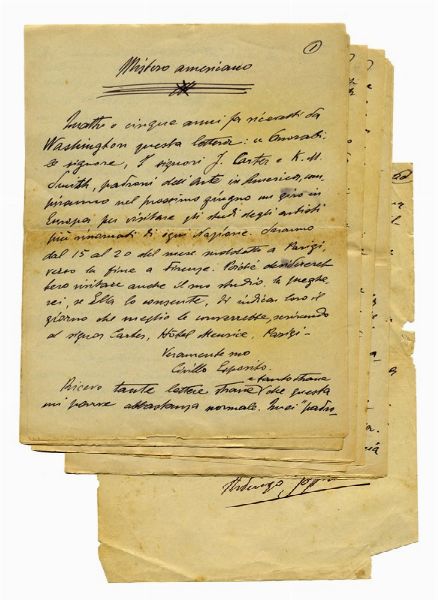 1
Mistero americano
Quattro o cinque anni fa ricevetti da
Washington questa lettera: « Onorabi-
le signore, I signori J. Carter e K. M.
Smith, padroni dell'Arte in America, com
piranno nel prossimo giugno un giro in
Europa per visitare gli studi degli artisti
più rinomati di ogni Nazione. Saranno
dal 15 al 20 del mese suddetto a Parigi,
verso la fine a Firenze. Poiché desiderereb
bero visitare anche il suo studio, la preghe
rei, se Ella lo consente, di indicar loro il
giorno che meglio le converrebbe, scrivendo
al signor Carter, Hôtel Meurice, Parigi.
Veramente suo
Cirillo Esposito.
Ricevo tante lettere strane e tanto strane che questa
mi parve abbastanza normale. Quei "padro-
Ardengo